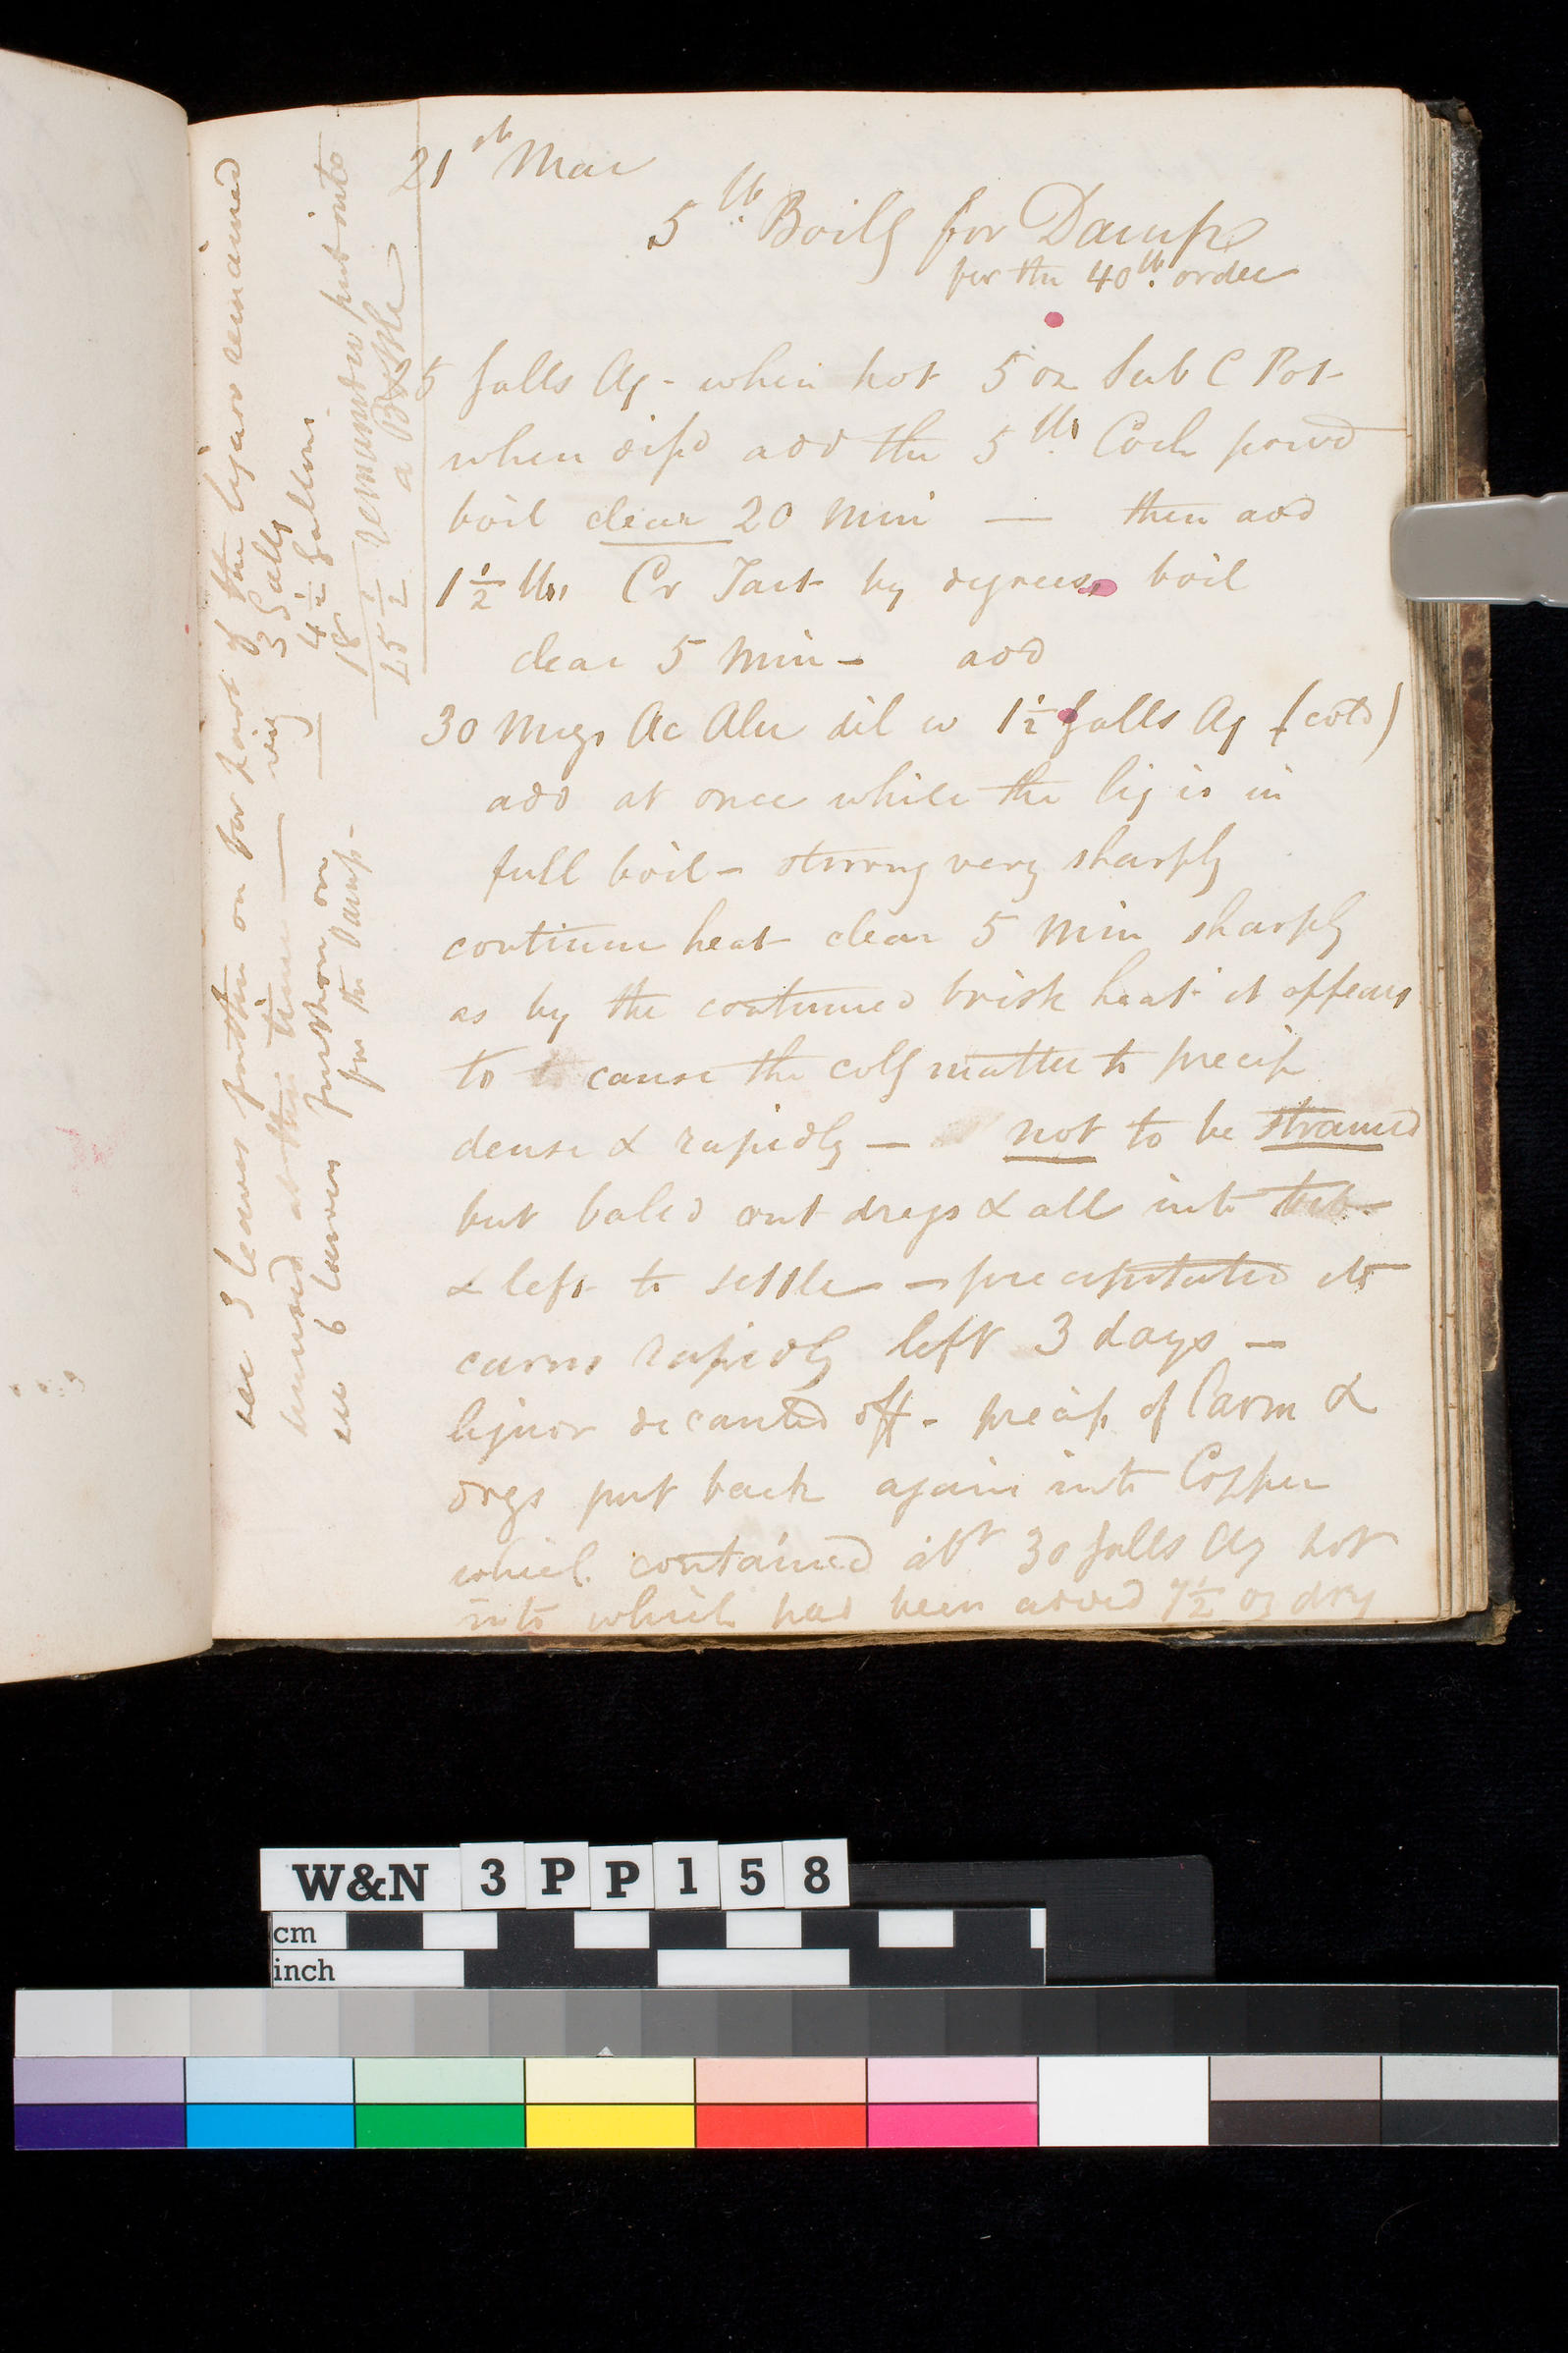 21st Mar
5 lb. Boilg for Damp
for the 40 lb. order
5 galls Aq - when hot 5 oz Sub C Pot
when disd add the 5 lbs. Coch powd
boil clear 20 min — then add
1½ lbs Cr Tart by degrees boil
clear 5 min - add
30 Megs Ac Alu dil w 1½ galls Aq (cold)
add at once while the liq is in
full boil - stirring very sharply
continue heat clear 5 min sharply
as by the continued brisk heat it appears
to cause the colg matter to precip
dense & rapidly — not to be strained
but baled out dregs & all into tub
& left to settle - precipitated its
carm rapidly left 3 days -
liquor decanted off - precip. of Carm &
dregs put back again into Copper
which contained abt 30 galls Aq hot
into which had been added 7½ oz dry
see 3 leaves further on for part of the liquor remained
unused at this time — viz 3 Galls
see 6 leaves further on 4½ gallons
for the Damp -
18 remainder put into
25½ a Bottle
W&N 3PP158
cm
inch